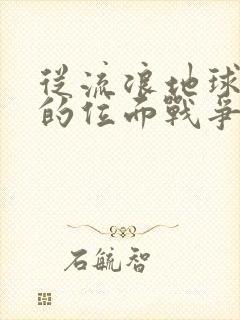 從流浪地球
的位面戰爭
石毓智